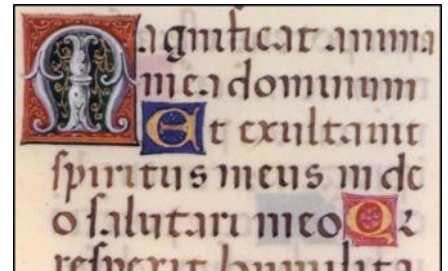 Magnificat anima
mea dominum
Et exultauit
spiritus meus in de
o salutari meo Qꝛ
respexit humilita